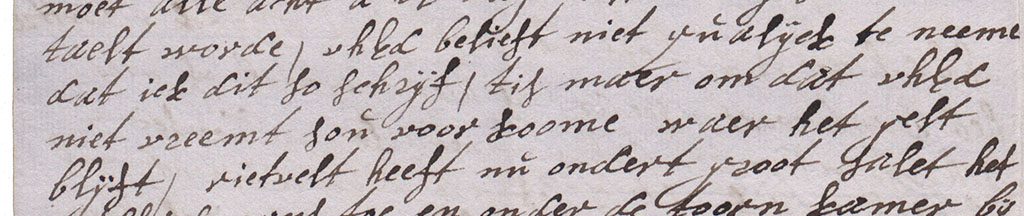 moet alle acht
taelt worde, vhEd belieft niet qualyck te neeme
dat ick dit so schryf, tis maer om dat vhEd
niet vreemt sou voor koome waer het gelt
blyft, rietvelt heeft nu ondert groot salet het
toe en onder de toorn kamer by